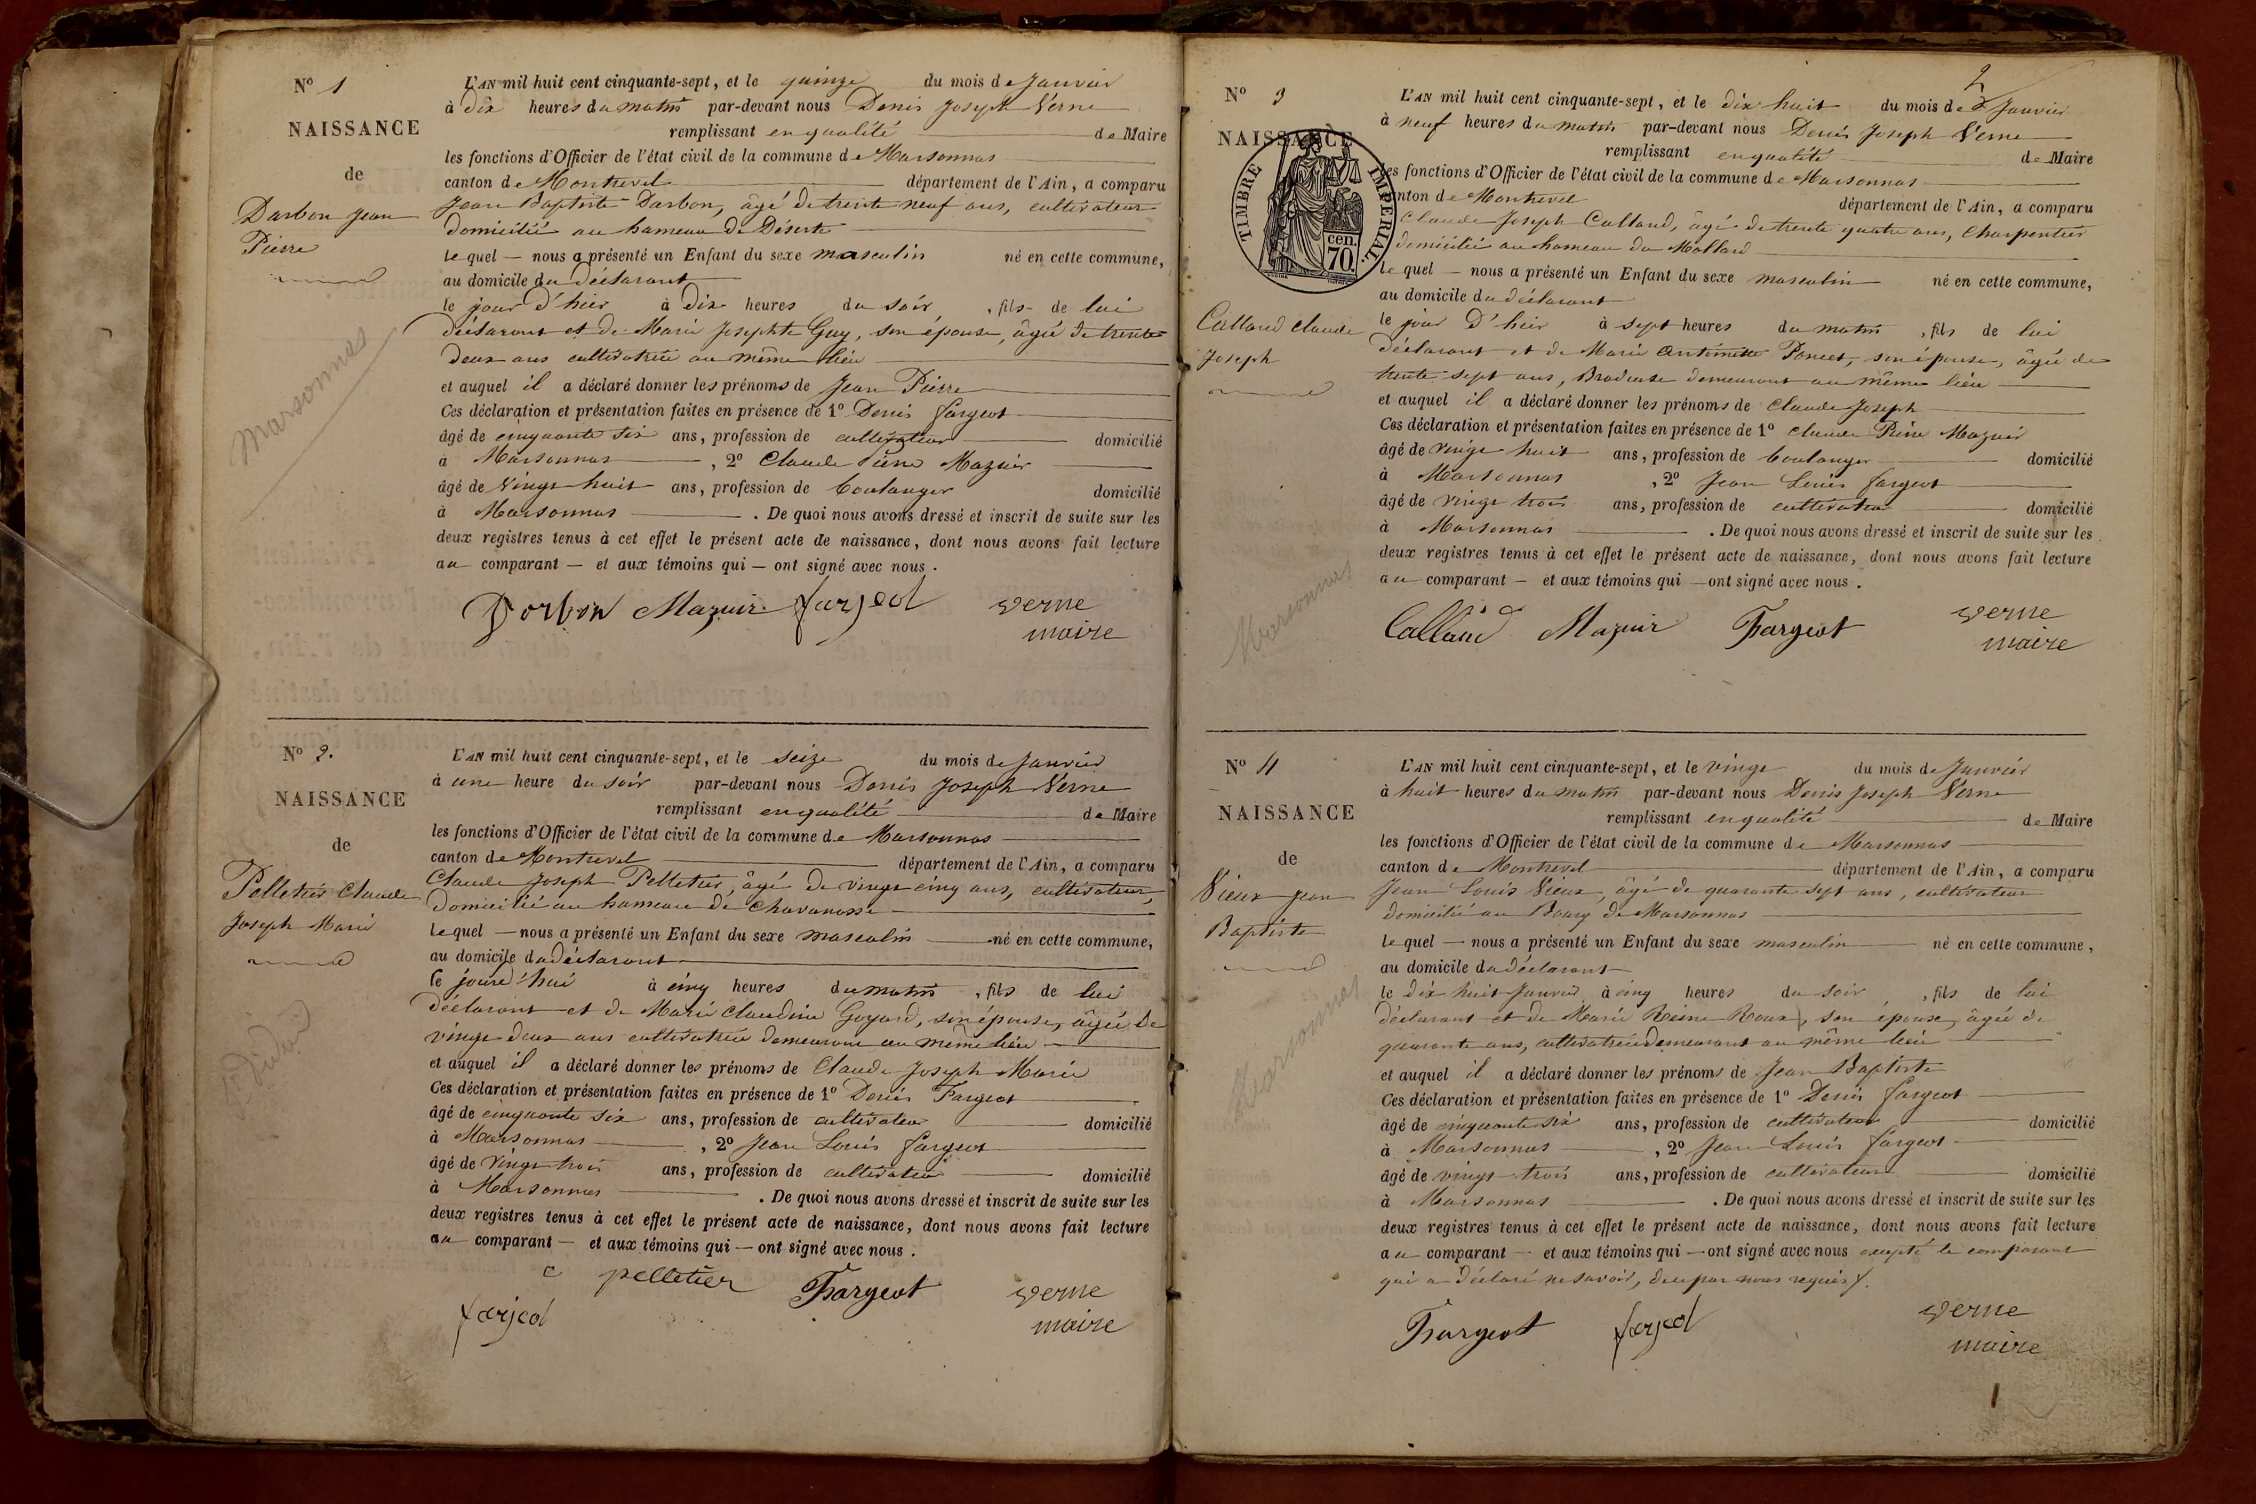 N° 1
NAISSANCE
de
Darbon Jean
Pierre
Marsonnas
L'AN mil huit cent cinquante-sept, et le quinze du mois de Janvier
à dix heures du matin par-devant nous Denis Joseph Verne
remplissant en qualité de Maire
les fonctions d'Officier de l'état civil de la commune de Marsonnas
canton de Montrevel département de l'Ain, a comparu
Jean Baptiste Darbon, âgé de trente neuf ans, cultivateur
domicilié au hameau de Déserte
lequel — nous a présenté un Enfant du sexe masculin né en cette commune,
au domicile du déclarant
le jour d'hier à dix heures du soir, fils de lui
déclarant et de Marie Josephte Guy, son épouse, âgée de trente
deux ans cultivatrice au même lieu
et auquel il a déclaré donner les prénoms de Jean Pierre
Ces déclaration et présentation faites en présence de 1° Denis fargeot
âgé de cinquante six ans, profession de cultivateur domicilié
à Marsonnas, 2° Claude Pierre Mazuir
âgé de vingt huit ans, profession de boulanger domicilié
à Marsonnas. De quoi nous avons dressé et inscrit de suite sur les
deux registres tenus à cet effet le présent acte de naissance, dont nous avons fait lecture
au comparant — et aux témoins qui — ont signé avec nous.
Dorbon Mazuir farjeot verne
maire
N° 2.
NAISSANCE
de
Pelletier Claude
Joseph Marie
L'AN mil huit cent cinquante-sept, et le seize du mois de Janvier
à une heure du soir par-devant nous Denis Joseph Verne
remplissant en qualité de Maire
les fonctions d'Officier de l'état civil de la commune de Marsonnas
canton de Montrevel département de l'Ain, a comparu
Claude Joseph Pelletier, âgé de vingt cinq ans, cultivateur,
domicilié au hameau de Chavanosse
lequel — nous a présenté un Enfant du sexe masculin né en cette commune,
au domicile du déclarant
le jourd'hui à cinq heures du matin, fils de lui
déclarant et de Marie Claudine Goyard, son épouse, âgée de
vingt deux ans cultivatrice demeurant au même lieu
et auquel il a déclaré donner les prénoms de Claude Joseph Marie
Ces déclaration et présentation faites en présence de 1° Denis Fargeot
âgé de cinquante six ans, profession de cultivateur domicilié
à Marsonnas, 2° Jean Louis fargeot
âgé de vingt trois ans, profession de cultivateur domicilié
à Marsonnas. De quoi nous avons dressé et inscrit de suite sur les
deux registres tenus à cet effet le présent acte de naissance, dont nous avons fait lecture
au comparant — et aux témoins qui — ont signé avec nous.
c pelletier Fargeot verne
farjeot maire
2
N° 3
NAISSANCE
TIMBRE IMPERIAL.
cen.
70.
Calland Claude
Joseph
Marsonnas
L'AN mil huit cent cinquante-sept, et le dix huit du mois de Janvier
à neuf heures du matin par-devant nous Denis Joseph Verne
remplissant en qualité de Maire
les fonctions d'Officier de l'état civil de la commune de Marsonnas
canton de Montrevel département de l'Ain, a comparu
Claude Joseph Calland, âgé de trente quatre ans, Charpentier
domicilié au hameau du Mollard
lequel — nous a présenté un Enfant du sexe masculin né en cette commune,
au domicile du déclarant
le jour d'hier à sept heures du matin, fils de lui
déclarant et de Marie Antoinette Poncet, son épouse, âgée de
trente sept ans, Brodeuse demeurant au même lieu
et auquel il a déclaré donner les prénoms de Claude Joseph
Ces déclaration et présentation faites en présence de 1° Claude Pierre Mazuir
âgé de vingt huit ans, profession de boulanger domicilié
à Marsonnas, 2° Jean Louis fargeot
âgé de vingt trois ans, profession de cultivateur domicilié
à Marsonnas. De quoi nous avons dressé et inscrit de suite sur les
deux registres tenus à cet effet le présent acte de naissance, dont nous avons fait lecture
au comparant — et aux témoins qui — ont signé avec nous.
Calland Mazuir Fargeot verne
maire
N° 4
NAISSANCE
de
Vieux Jean
Baptiste
Marsonnas
L'AN mil huit cent cinquante-sept, et le vingt du mois de Janvier
à huit heures du matin par-devant nous Denis Joseph Verne
remplissant en qualité de Maire
les fonctions d'Officier de l'état civil de la commune de Marsonnas
canton de Montrevel département de l'Ain, a comparu
Jean Louis Vieux, âgé de quarante sept ans, cultivateur
domicilié au Bourg de Marsonnas
lequel — nous a présenté un Enfant du sexe masculin né en cette commune,
au domicile du déclarant
le dix huit Janvier à cinq heures du soir, fils de lui
déclarant et de Marie Reine Roux, son épouse, âgée de
quarante ans, cultivatrice demeurant au même lieu
et auquel il a déclaré donner les prénoms de Jean Baptiste
Ces déclaration et présentation faites en présence de 1° Denis fargeot
âgé de cinquante six ans, profession de cultivateur domicilié
à Marsonnas, 2° Jean Louis fargeot
âgé de vingt trois ans, profession de cultivateur domicilié
à Marsonnas. De quoi nous avons dressé et inscrit de suite sur les
deux registres tenus à cet effet le présent acte de naissance, dont nous avons fait lecture
au comparant — et aux témoins qui — ont signé avec nous excepté le comparant
qui a déclaré ne savoir, de ce par nous requis.
Fargeot farjeot verne
maire